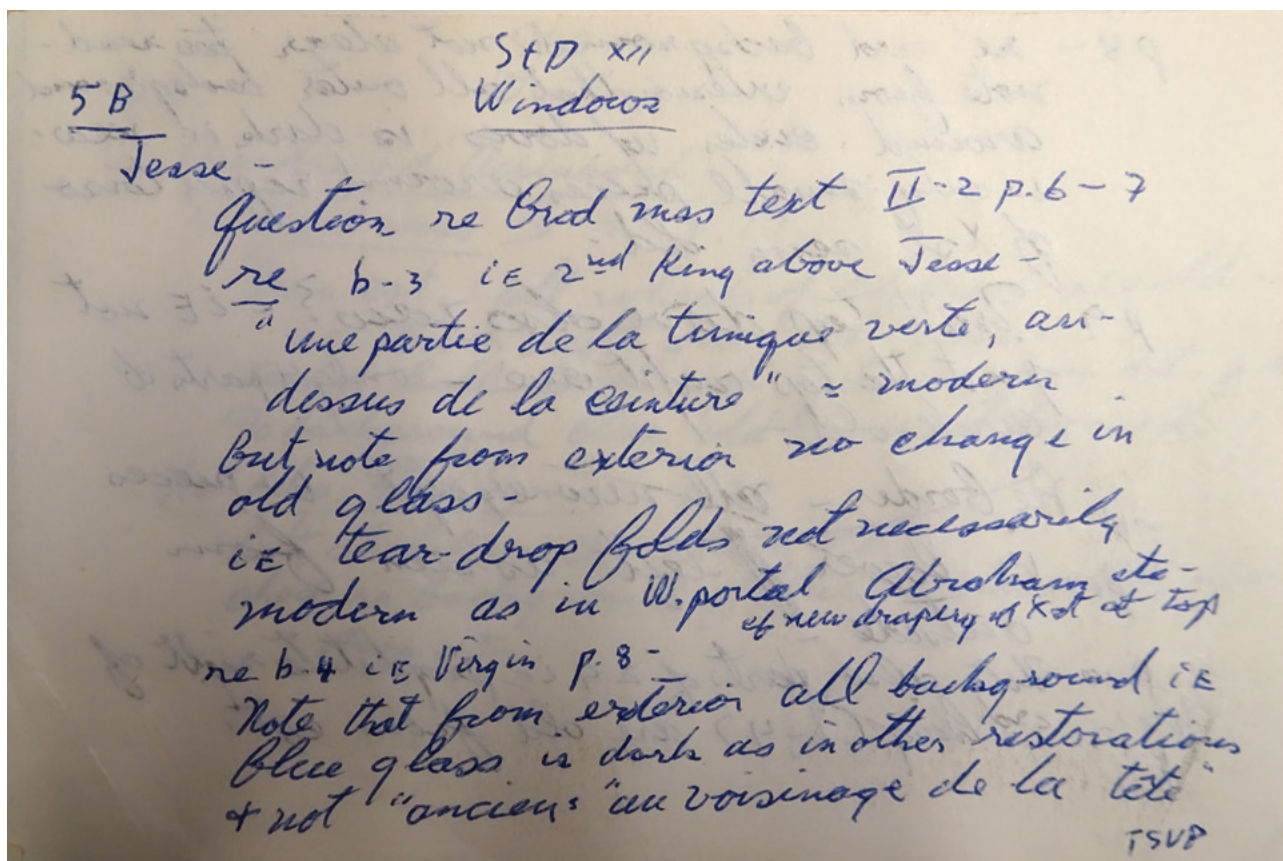 StD XII
5 B Windows
Jesse -
Question re Grod mss text II-2 p. 6-7
re b-3 iE 2nd King above Jesse -
"une partie de la tunique verte, au-
dessus de la ceinture" = modern
But note from exterior no change in
old glass -
iE tear-drop folds not necessarily
modern as in W. portal Abraham etc -
cf new drapery of Xst at top
re b-4 iE Virgin p. 8 -
Note that from exterior all background iE
blue glass is dark as in other restorations
+ not "ancien" "au voisinage de la tête"
TSVP